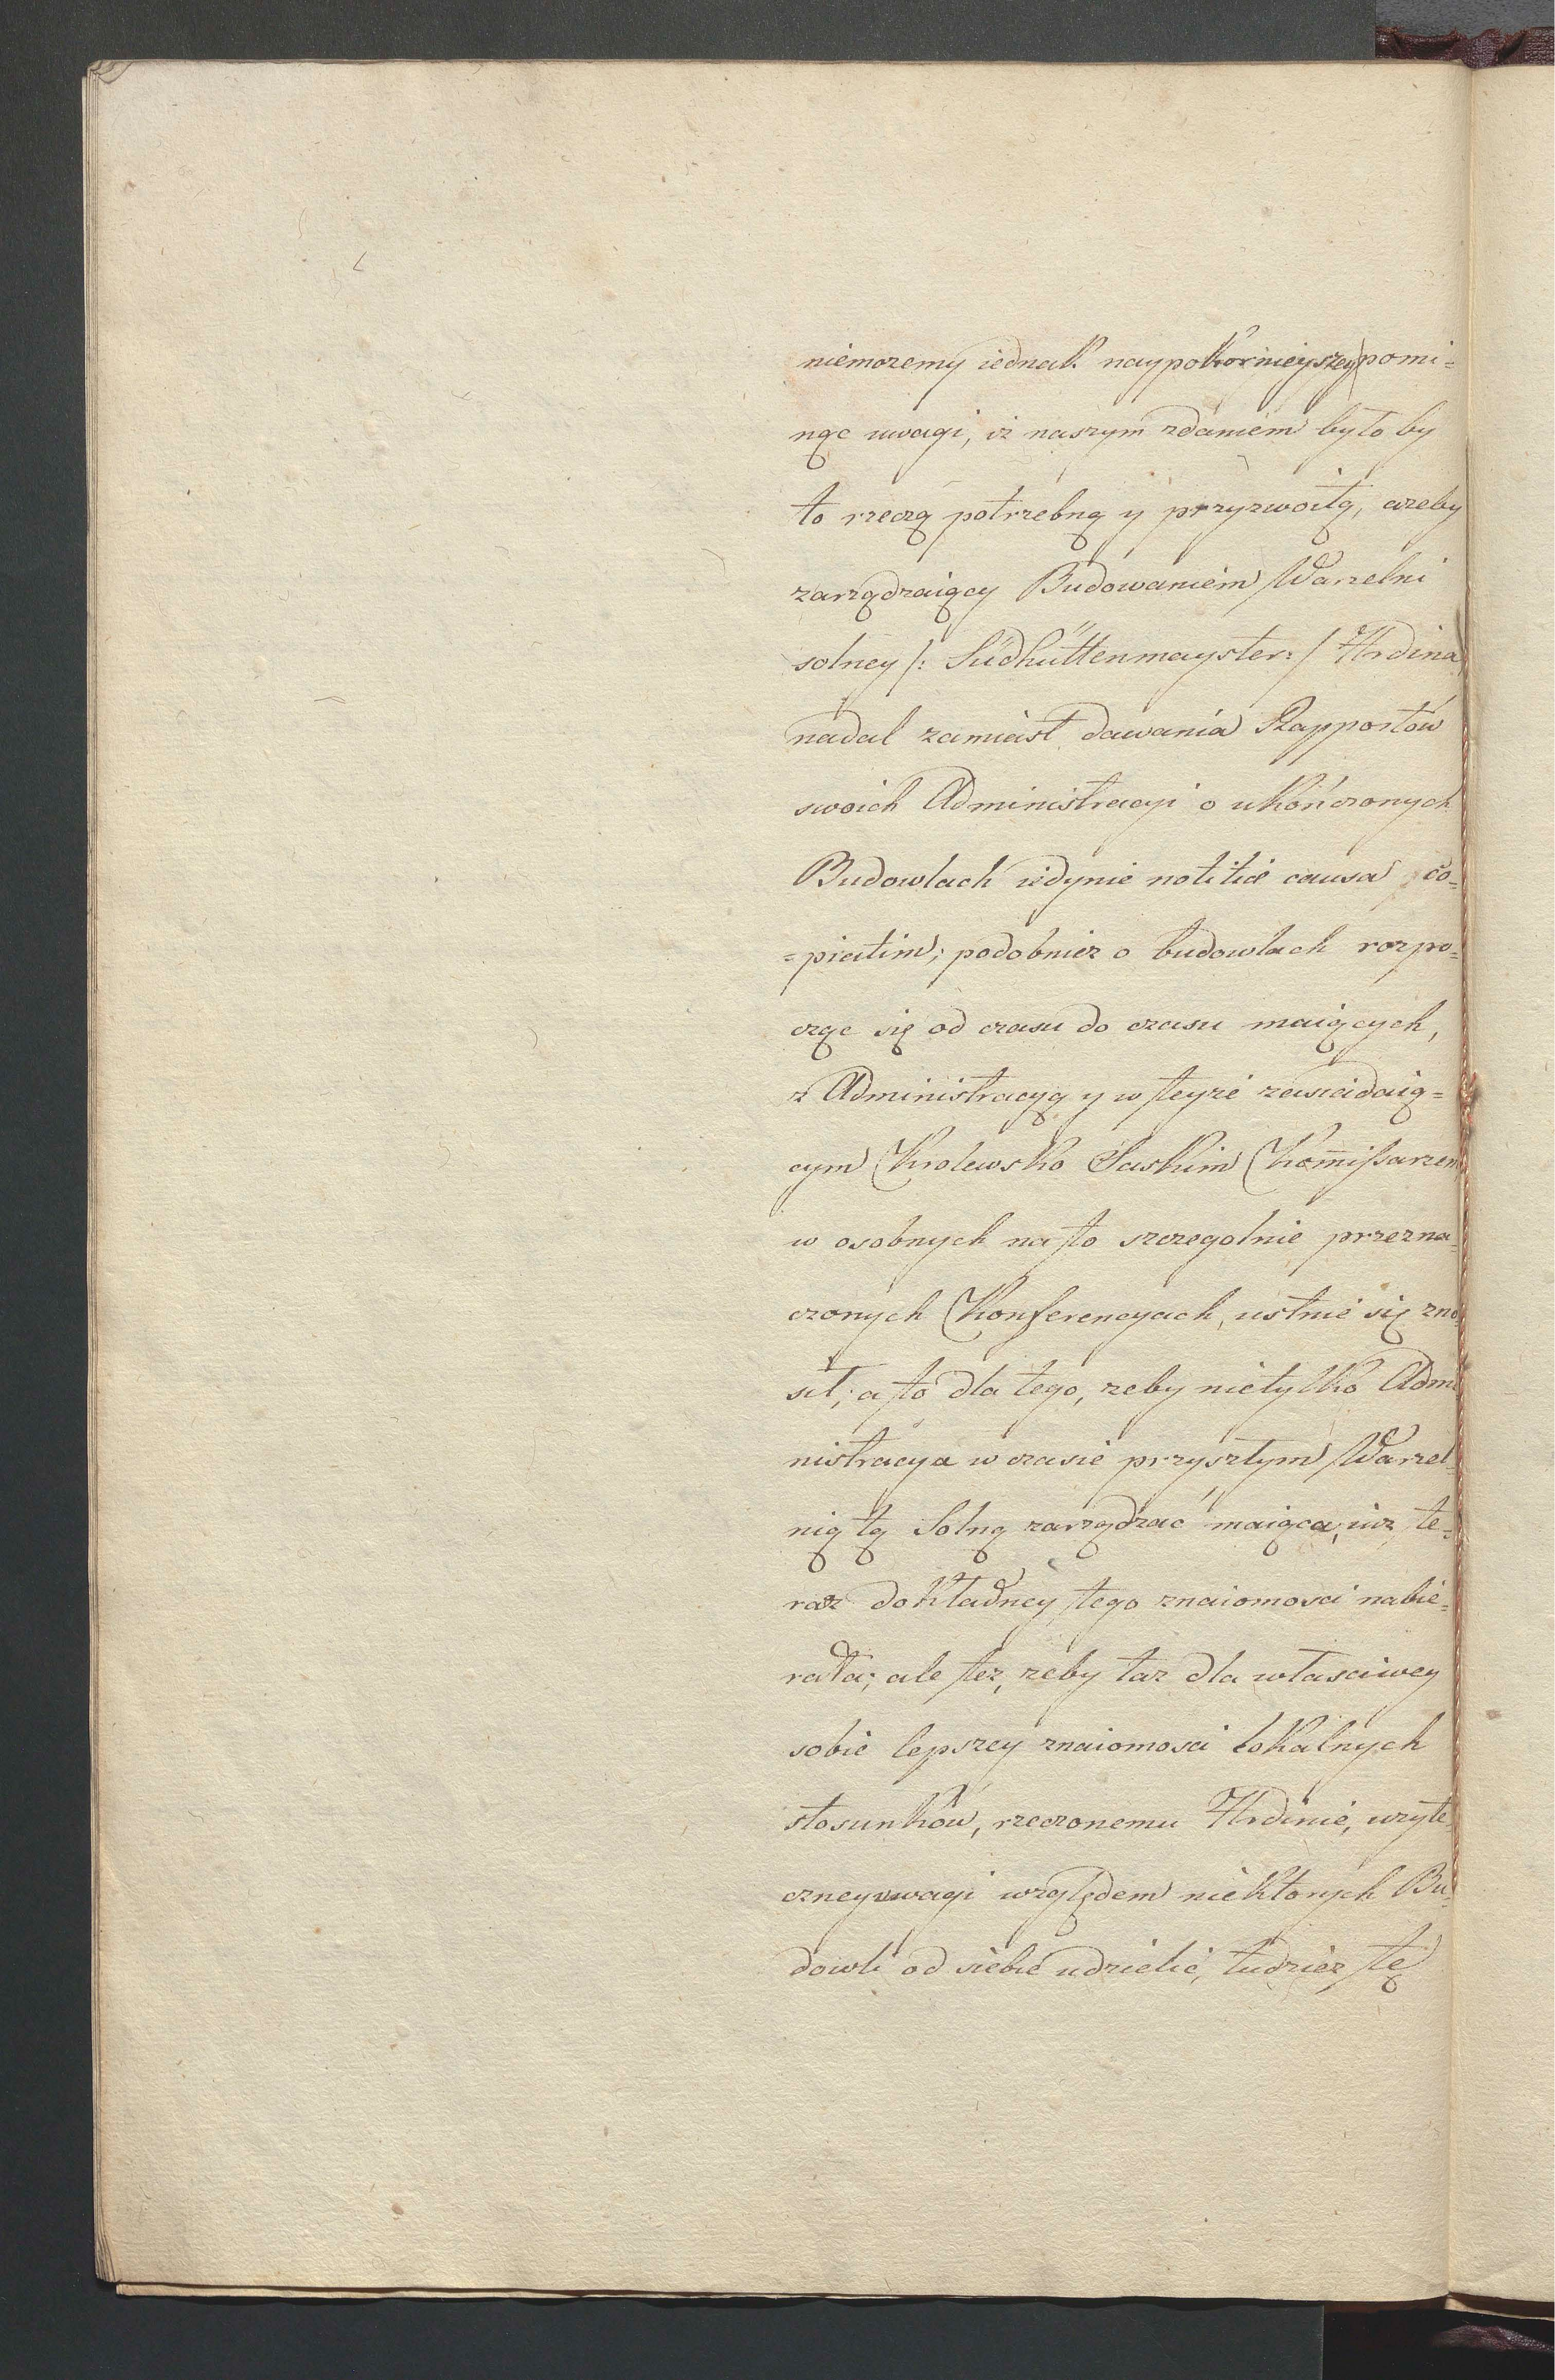 niemozemy iednak naypokornieyszey pomi=
nąc uwagi, iz naszym zdaniem byłoby
to rzeczą potrzebną y przyzwoitą, azeby
zarządzaiący Budowaniem Warzelni
solney /: Südhüttenmayster :/ Hrdina
nadal zamiast dawania Rapportow
swoich Administracyi o ukończonych
Budowlach iedynie notitiæ causa co=
=piatim; podobniez o budowlach rozpo=
cząc się od czasu do czasu maiących,
z Administracyą y w teyze zasiadaią=
cym Krolewsko Saskim Kom̄issarzem
w osobnych na to szczegolnie przezna=
czonych Konferencyach, ustnie się zno=
sił; a to dla tego, zeby nietylko Admi
nistracya w czasie przyszłym Warzel=
nią tą Solną zarządzać maiąca, iuz te=
raz dokładney tego znaiomosci nabie=
rała; ale tez, zeby taz dla własciwey
sobie lepszey znaiomosci lokalnych
stosunków, rzeczonemu Hrdinie, uzyte
czney uwagi względem niektorych Bu=
dowli od siebie udzielić, tudziez tę